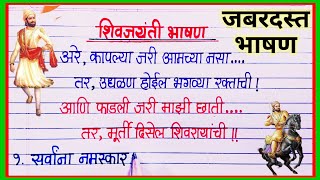 जबरदस्त
भाषण
शिवजयंती भाषण
अरे, कापल्या जरी आमच्या नसा....
तर, उधळण होईल भगव्या रक्ताची !
आणि फाडली जरी माझी छाती....
तर, मूर्ती दिसेल शिवरायांची !!
१. सर्वांना नमस्कार